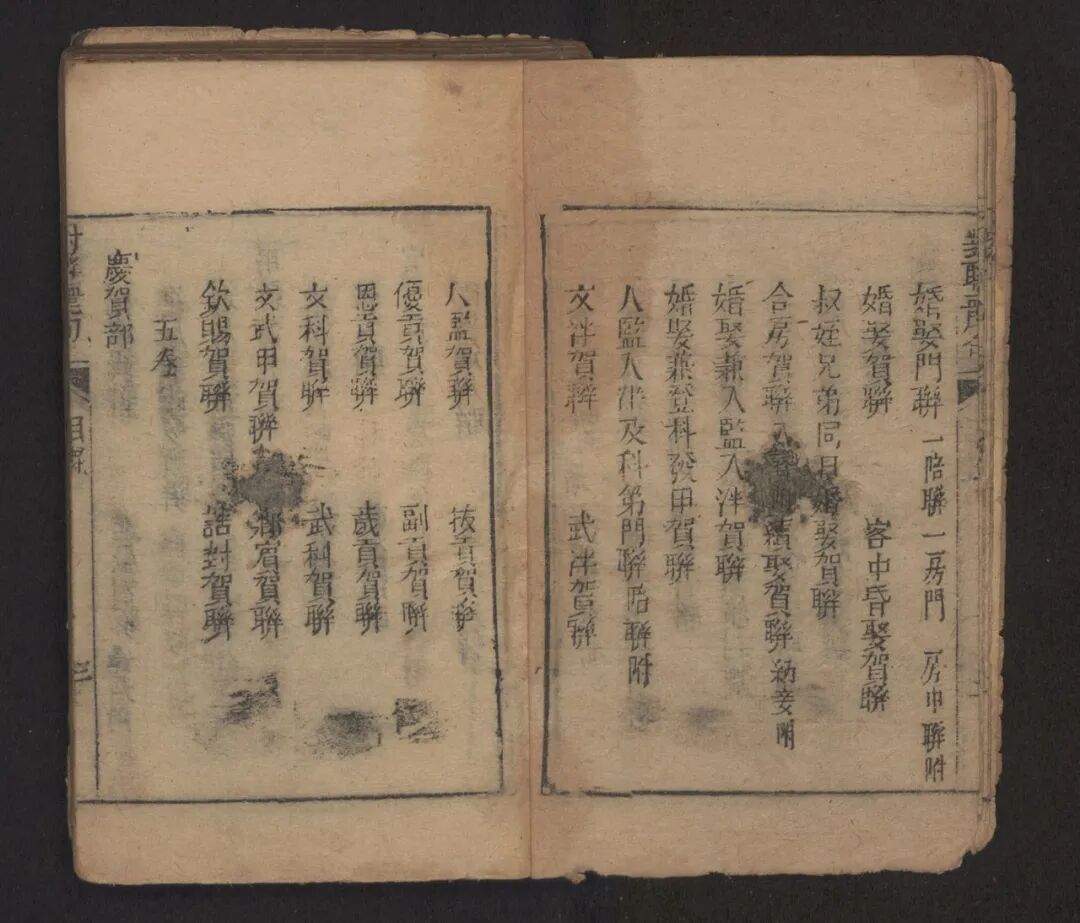 婚娶門聯 一陪聯 一房門 一房中聯附
婚娶賀聯 客中昏娶賀聯
叔姪兄弟同日婚娶賀聯
合房賀聯 續娶賀聯 納妾附
婚娶兼入監入泮賀聯
婚娶兼登科發甲賀聯
入監入泮及科第門聯 陪聯附
文泮賀聯 武泮賀聯
入監賀聯 拔貢賀聯
優貢賀聯 副貢賀聯
恩貢賀聯 歲貢賀聯
文科賀聯 武科賀聯
文武甲賀聯 鄉賓賀聯
欽賜賀聯 誥封賀聯
五卷
慶賀部
目錄